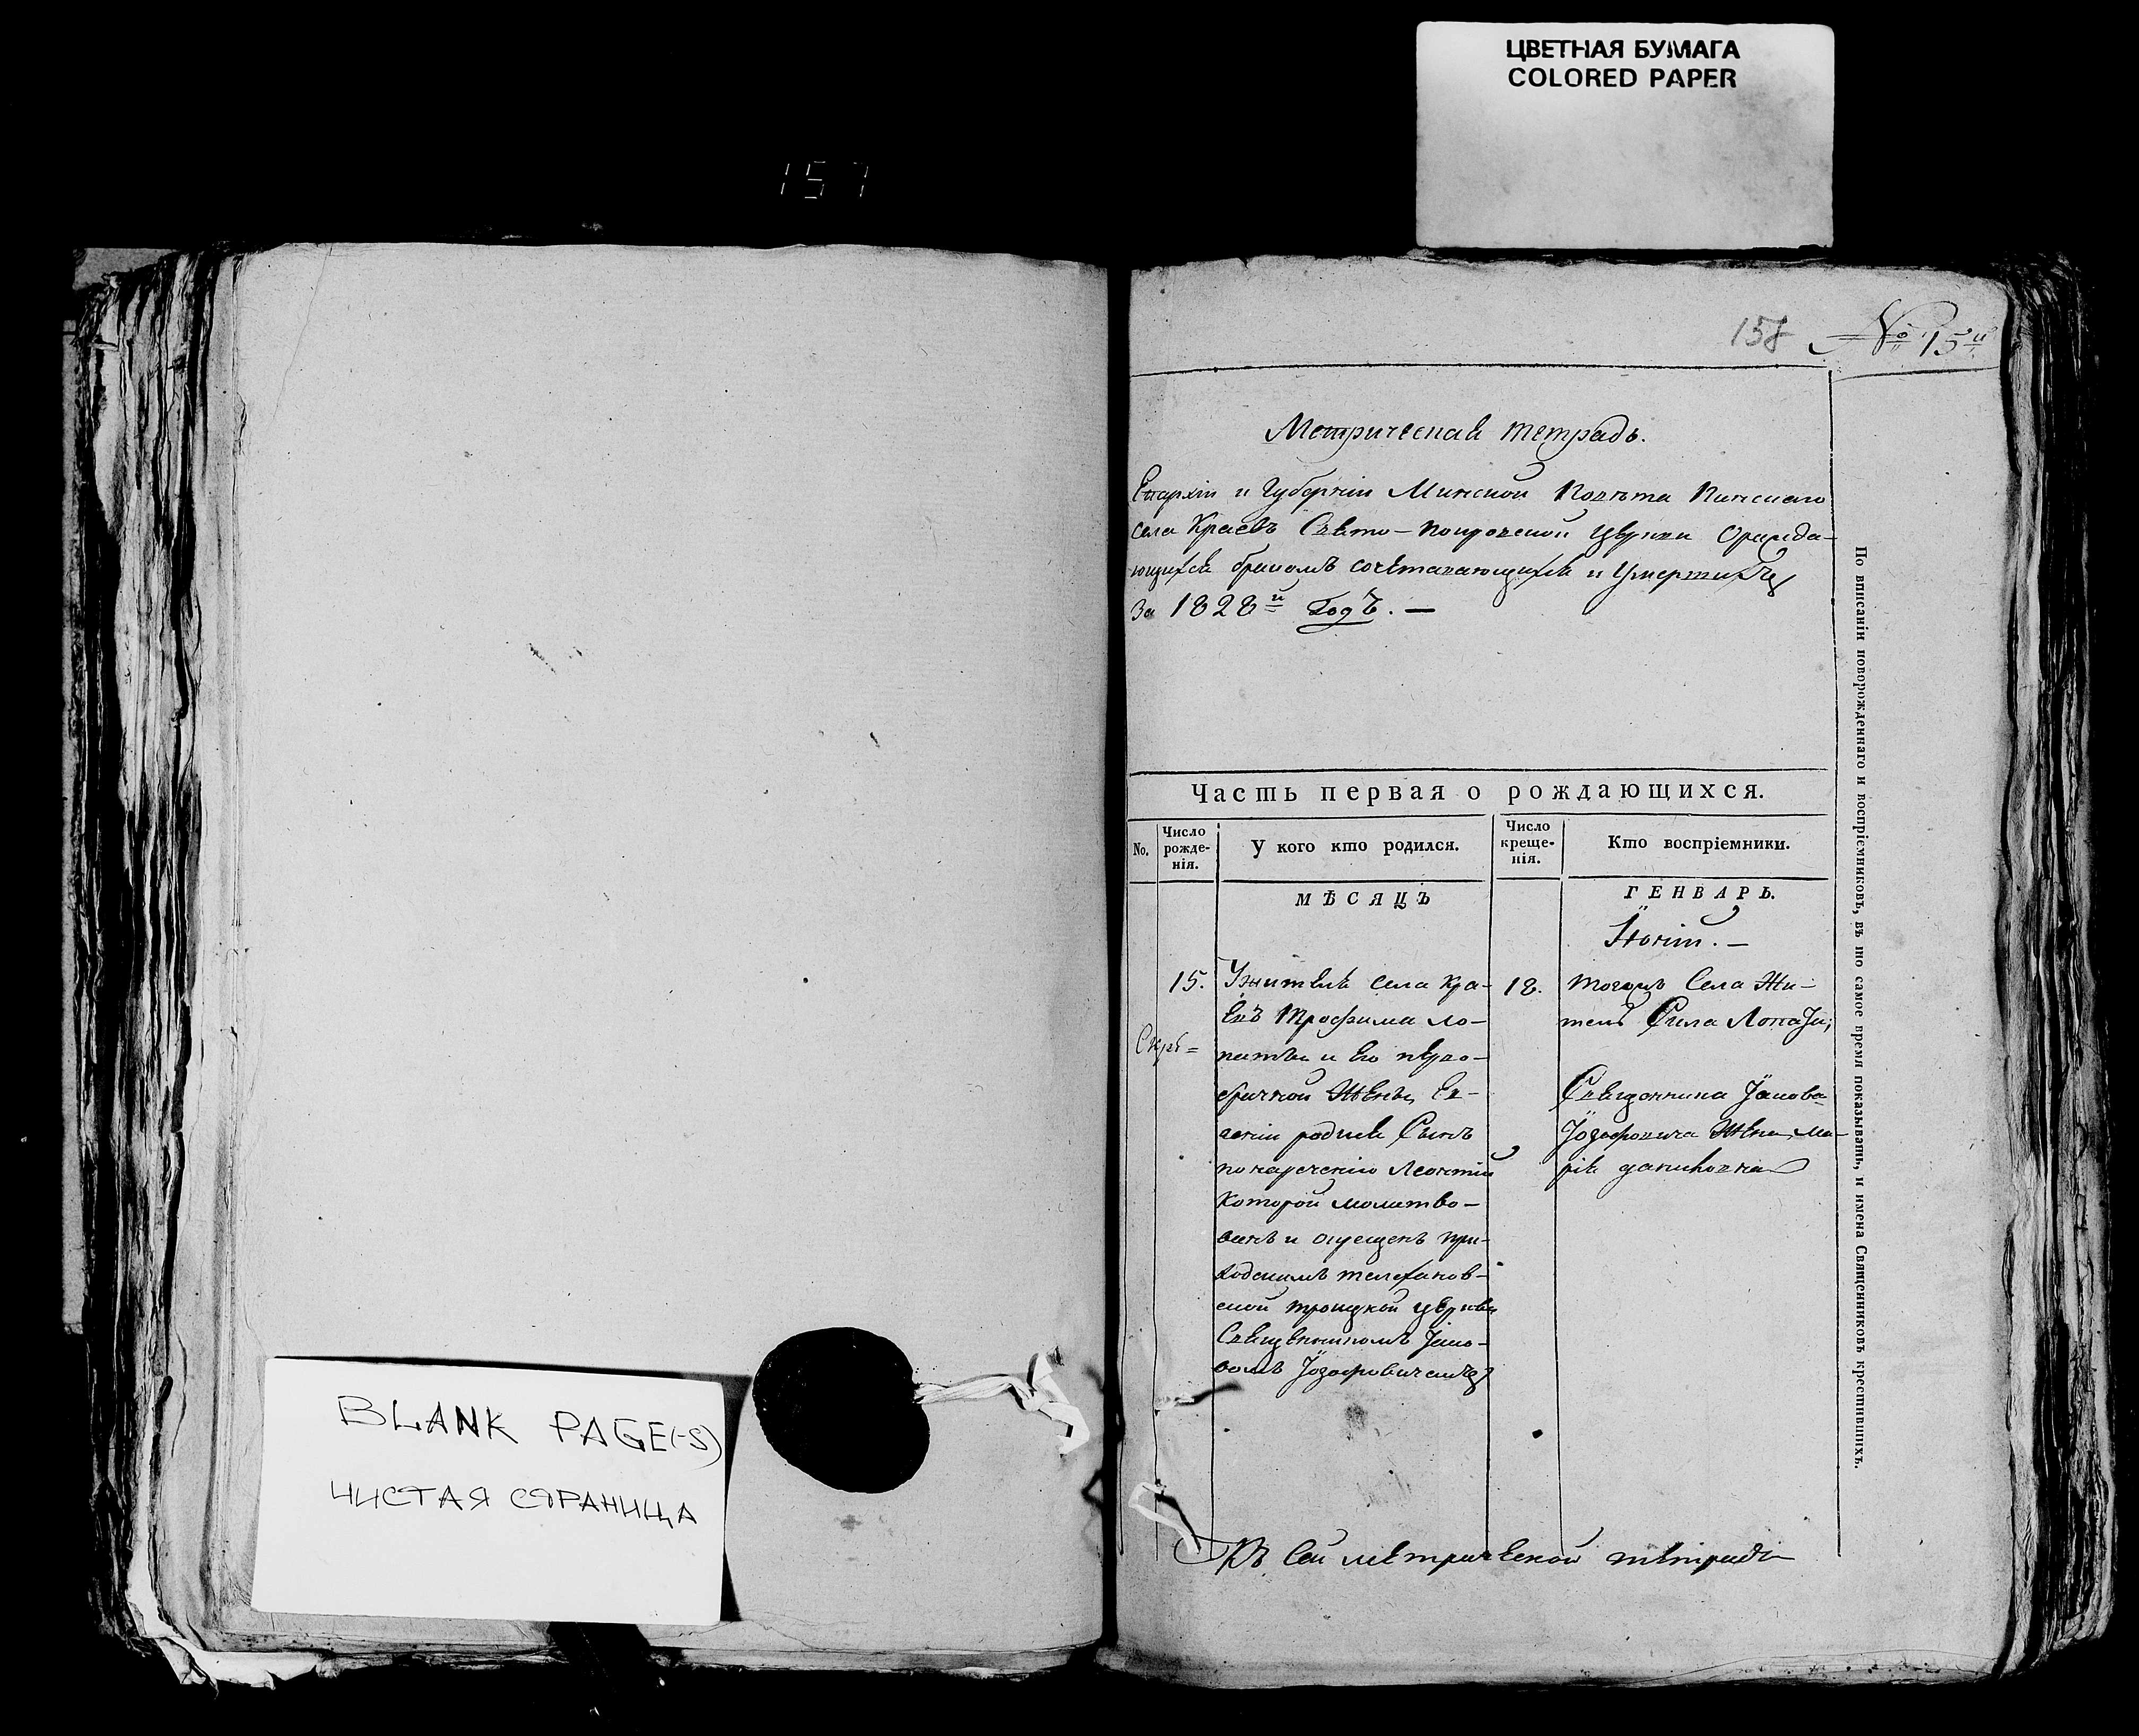 ЦВЕТНАЯ БУМАГА
COLORED PAPER
157
158 № 15й
Метрическая тетрадь.
Епархіи и Губерніи Минской Повѣта Пинскаго
села Краевъ Свято-Покровской Церкви О ражда-
ющихся бракомъ сочетавающихся и Умершихъ
За 1828й Годъ. —
Часть первая о рождающихся.
No.
Число рожде-нія.
У кого кто родился.
Число креще-нія.
Кто воспріемники.
МѢСЯЦЪ
ГЕНВАРЬ.
15.
села Кра-
евъ Трофима Ло-
и его перво-
брачной Жены Ев-
родися Сынъ
по нареченію Леонтій
Которой молитво-
ванъ и окрещенъ при-
ходскимъ телехановь-
ской троицкой церкви
Священникомъ Іако-
вомъ Іозофовичемъ
18.
тогожъ Села Жи-
тель Сила
Священника Іакова
Іозофовича Жена Ма-
рія даниловна
Къ Сей метрической тетради
По вписаніи новорожденнаго и воспріемниковъ, въ то самое время показывать, и имена Священниковъ крестившихъ.
BLANK PAGE(-S)
ЧИСТАЯ СТРАНИЦА